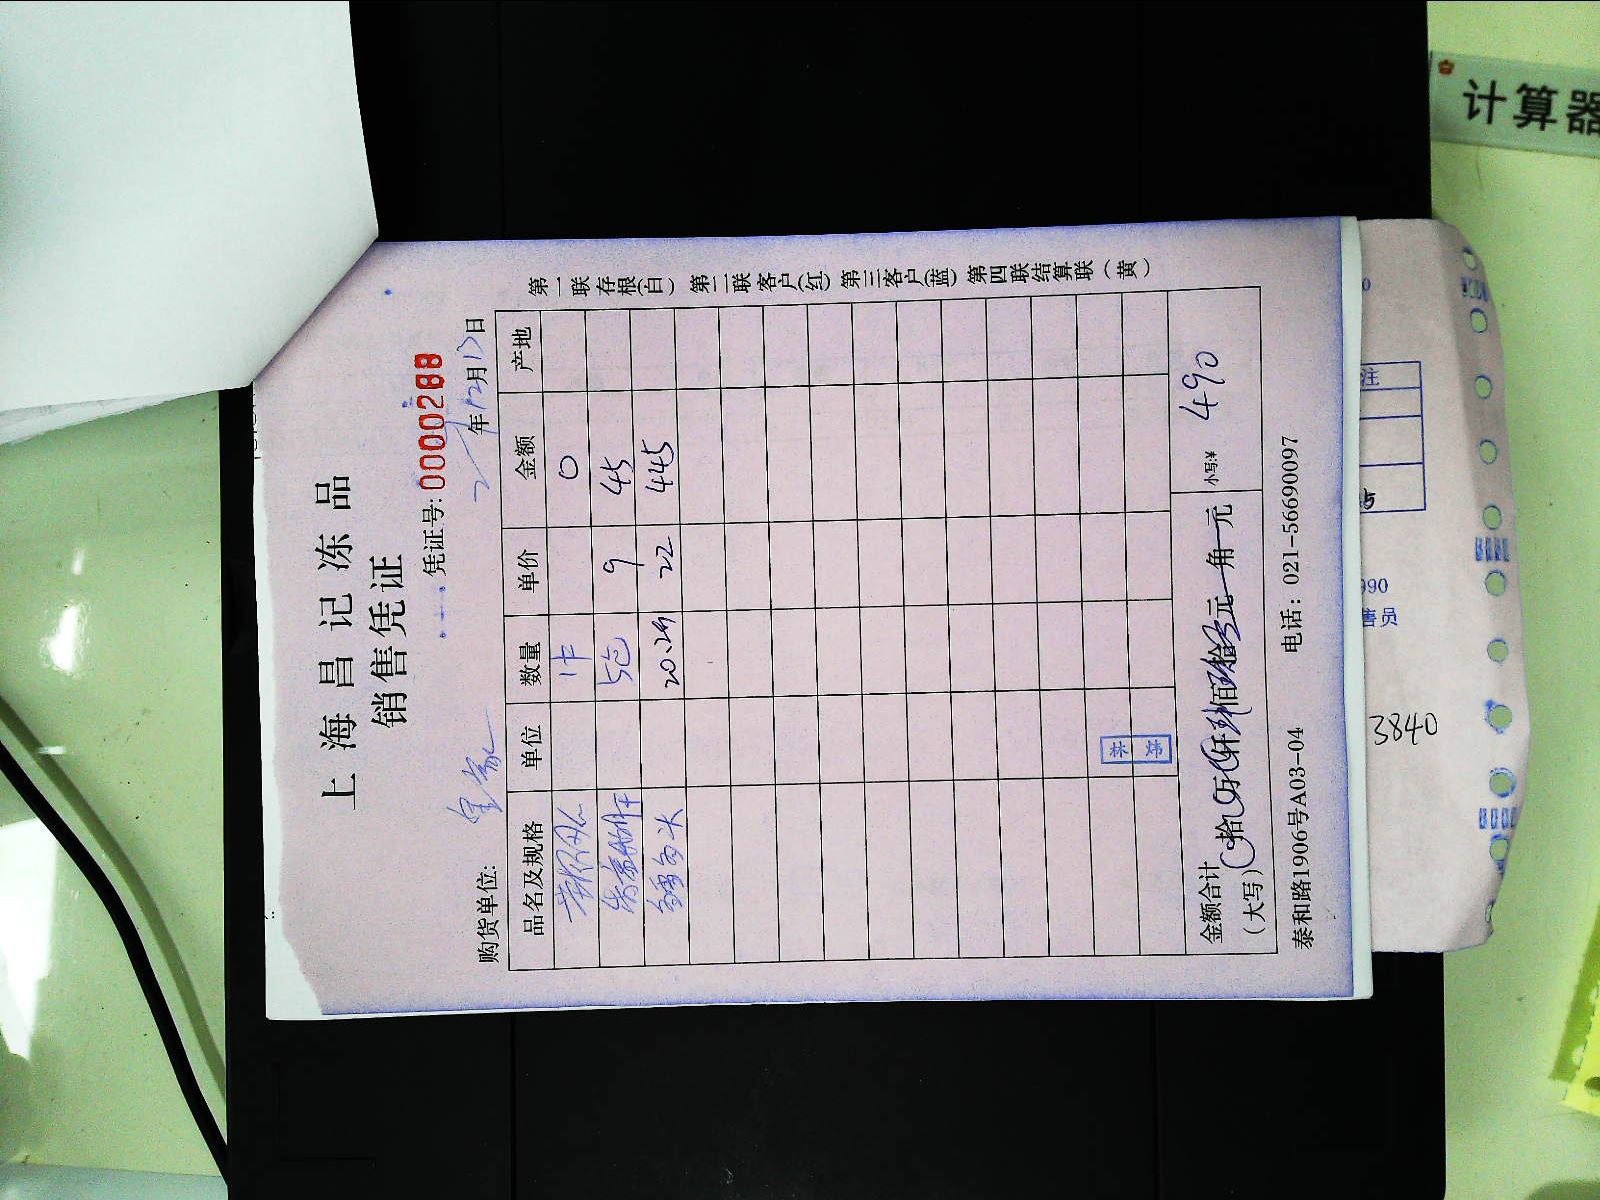 上海昌记冻品
销售凭证
凭证号: 0000288
购货单位: 年12月13日
品名及规格 单位 数量 单价 金额 产地
0
5包 9 45
20.2斤 22 445
林炜
金额合计
(大写) 拾 万 仟 佰 拾 元 角 元 小写:¥ 490
泰和路1906号A03-04 电话: 021-56690097
第一联存根(白) 第二联客户(红) 第三客户(蓝) 第四联结算联(黄)
计算器
注
990
售员
3840